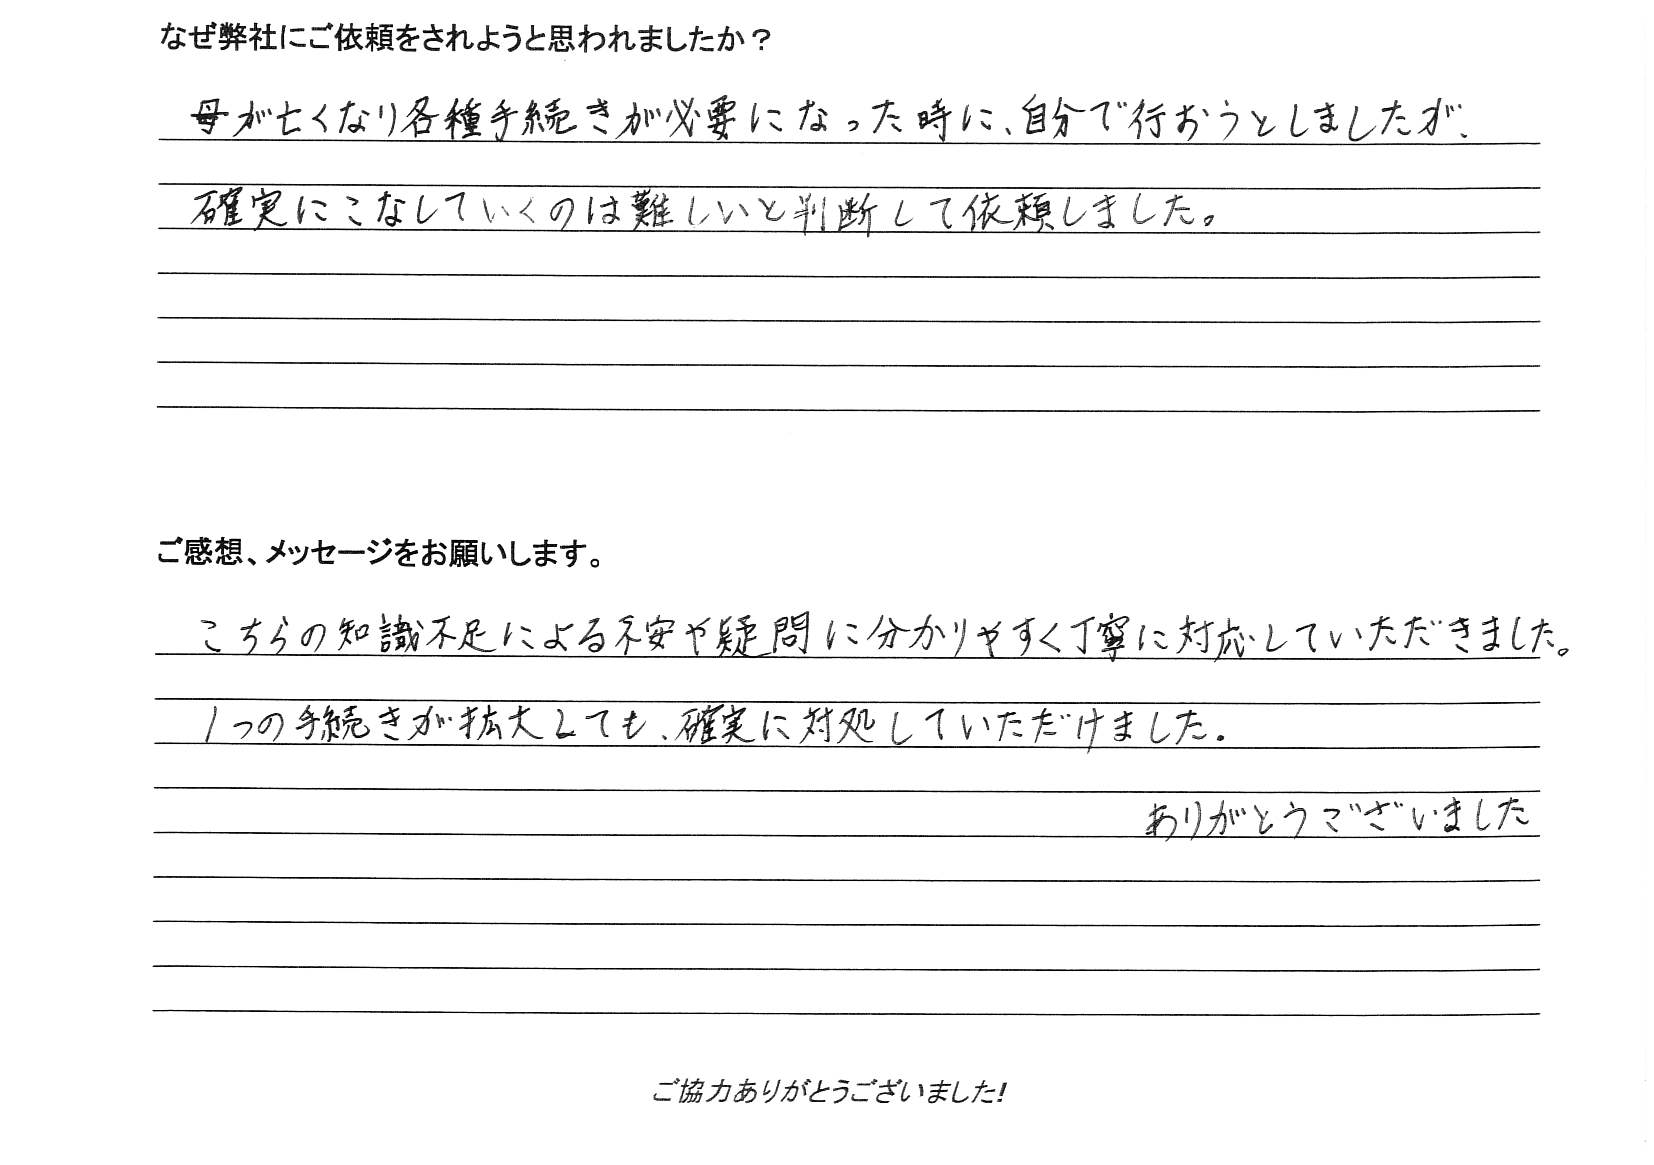 なぜ弊社にご依頼をされようと思われましたか？
母が亡くなり各種手続きが必要になった時に、自分で行おうとしましたが、
確実にこなしていくのは難しいと判断して依頼しました。
ご感想、メッセージをお願いします。
こちらの知識不足による不安や疑問に分かりやすく丁寧に対応していただきました。
1つの手続きが拡大しても、確実に対処していただけました.
ありがとうございました
ご協力ありがとうございました!